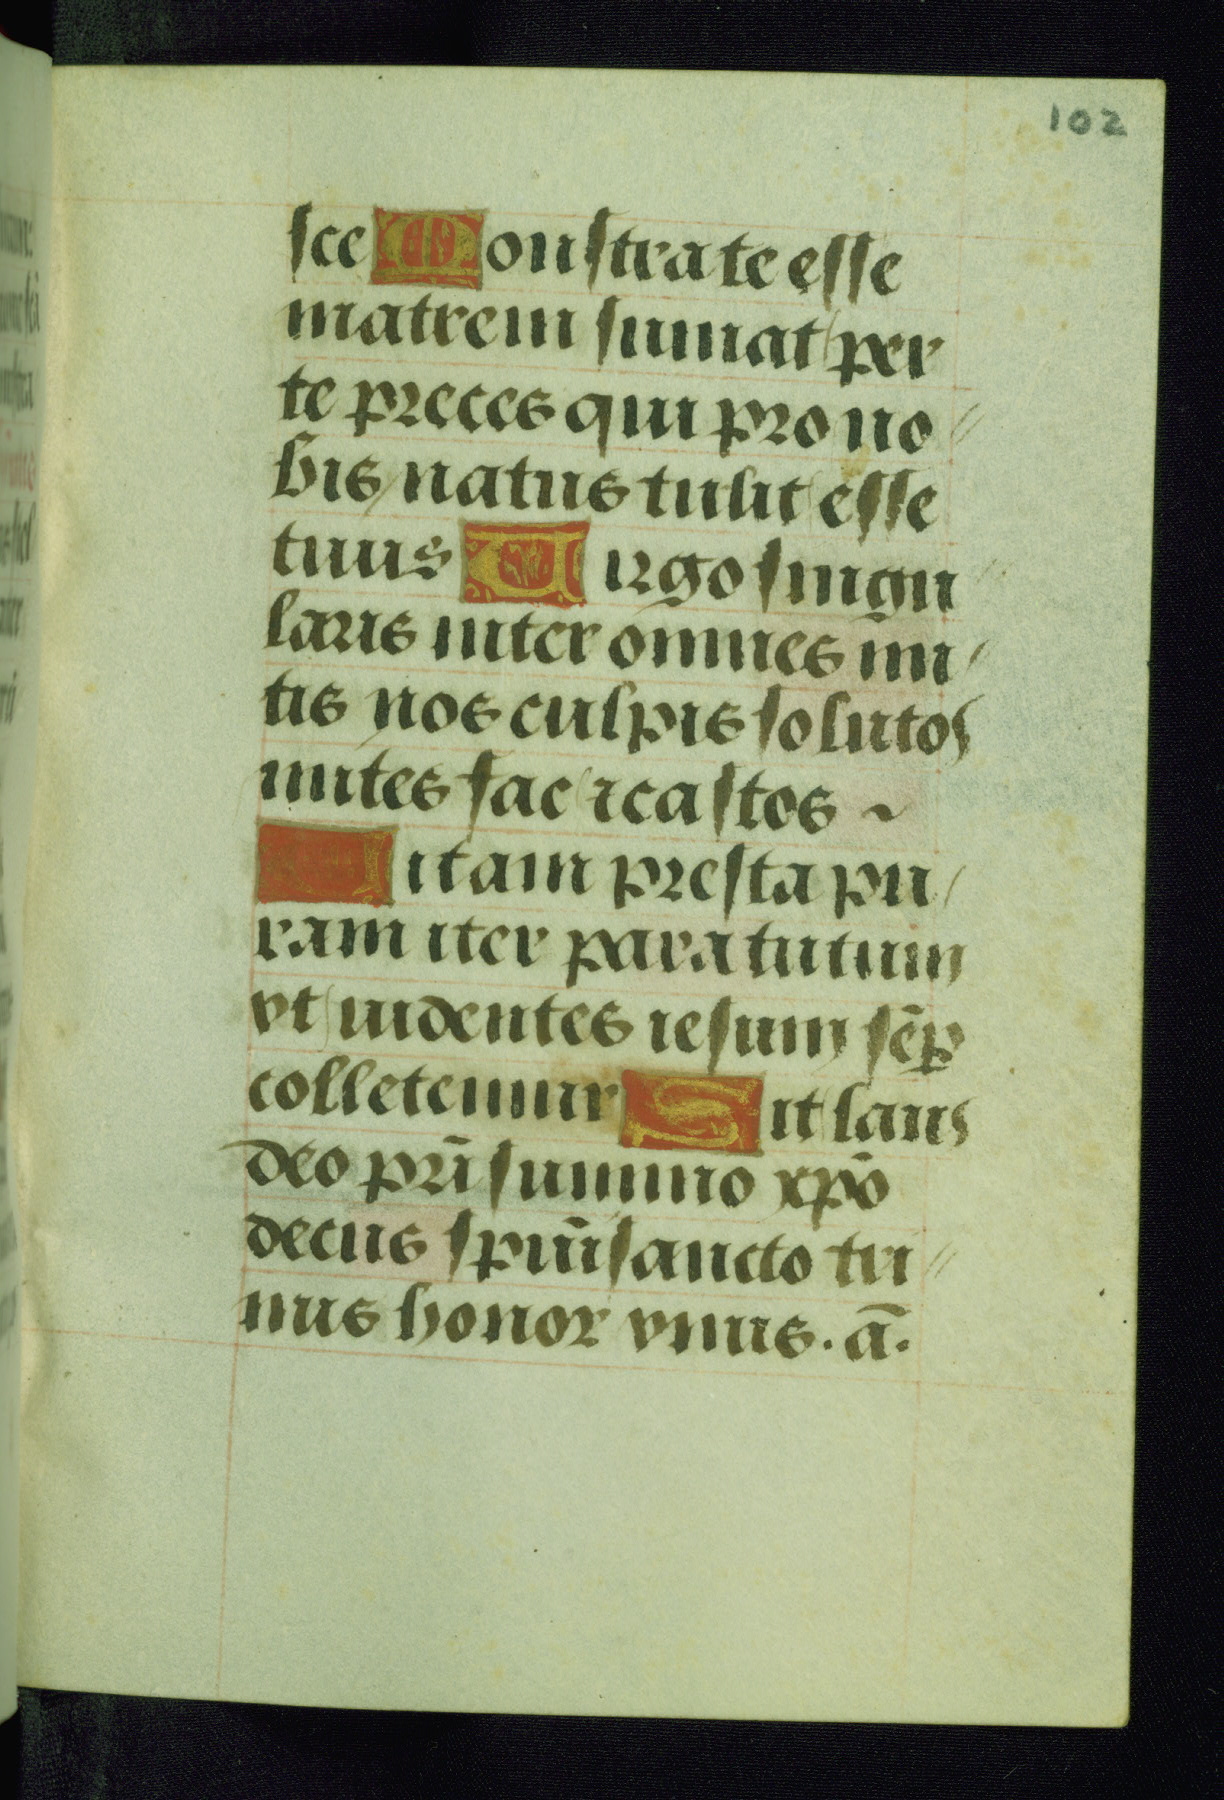 102
sce Monstra te esse
matrem sumat per
te preces qui pro no
bis natus tulit esse
tuus Uirgo singu
laris inter omnes mi
tis nos culpis solutos
mites fac et castos
Uitam presta pu
ram iter para tutum
vt uidentes iesum semꝑ
colletemur Sit laus
deo pr̄i summo xp̄o
decus spūi sancto tri
nus honor vnus. ā.